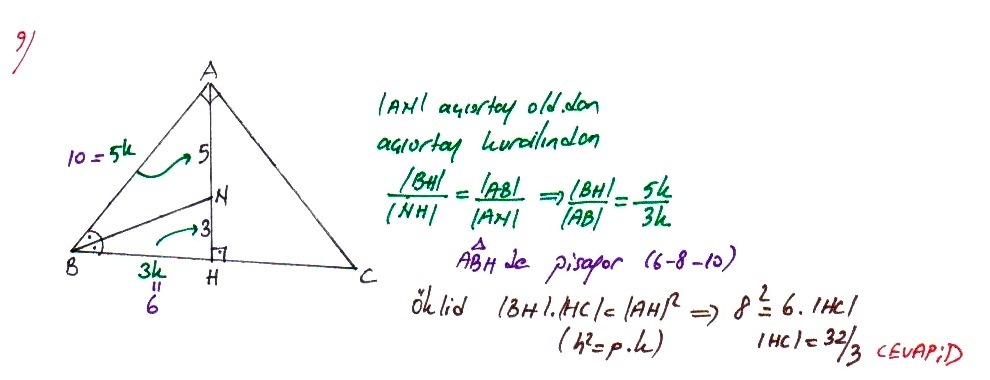 9)
A
10 = 5k
5
N
3
B
3k
H
C
"
6
|AN| açıortay old.dan
açıortay kuralından
|BH|/|NH| = |AB|/|AN| ⇒ |BH|/|AB| = 5k/3k
ABH de pisagor (6-8-10)
Öklid |BH|.|HC| = |AH|² ⇒ 8² = 6.|HC|
(h²=p.k) |HC| = 32/3 CEVAP:D